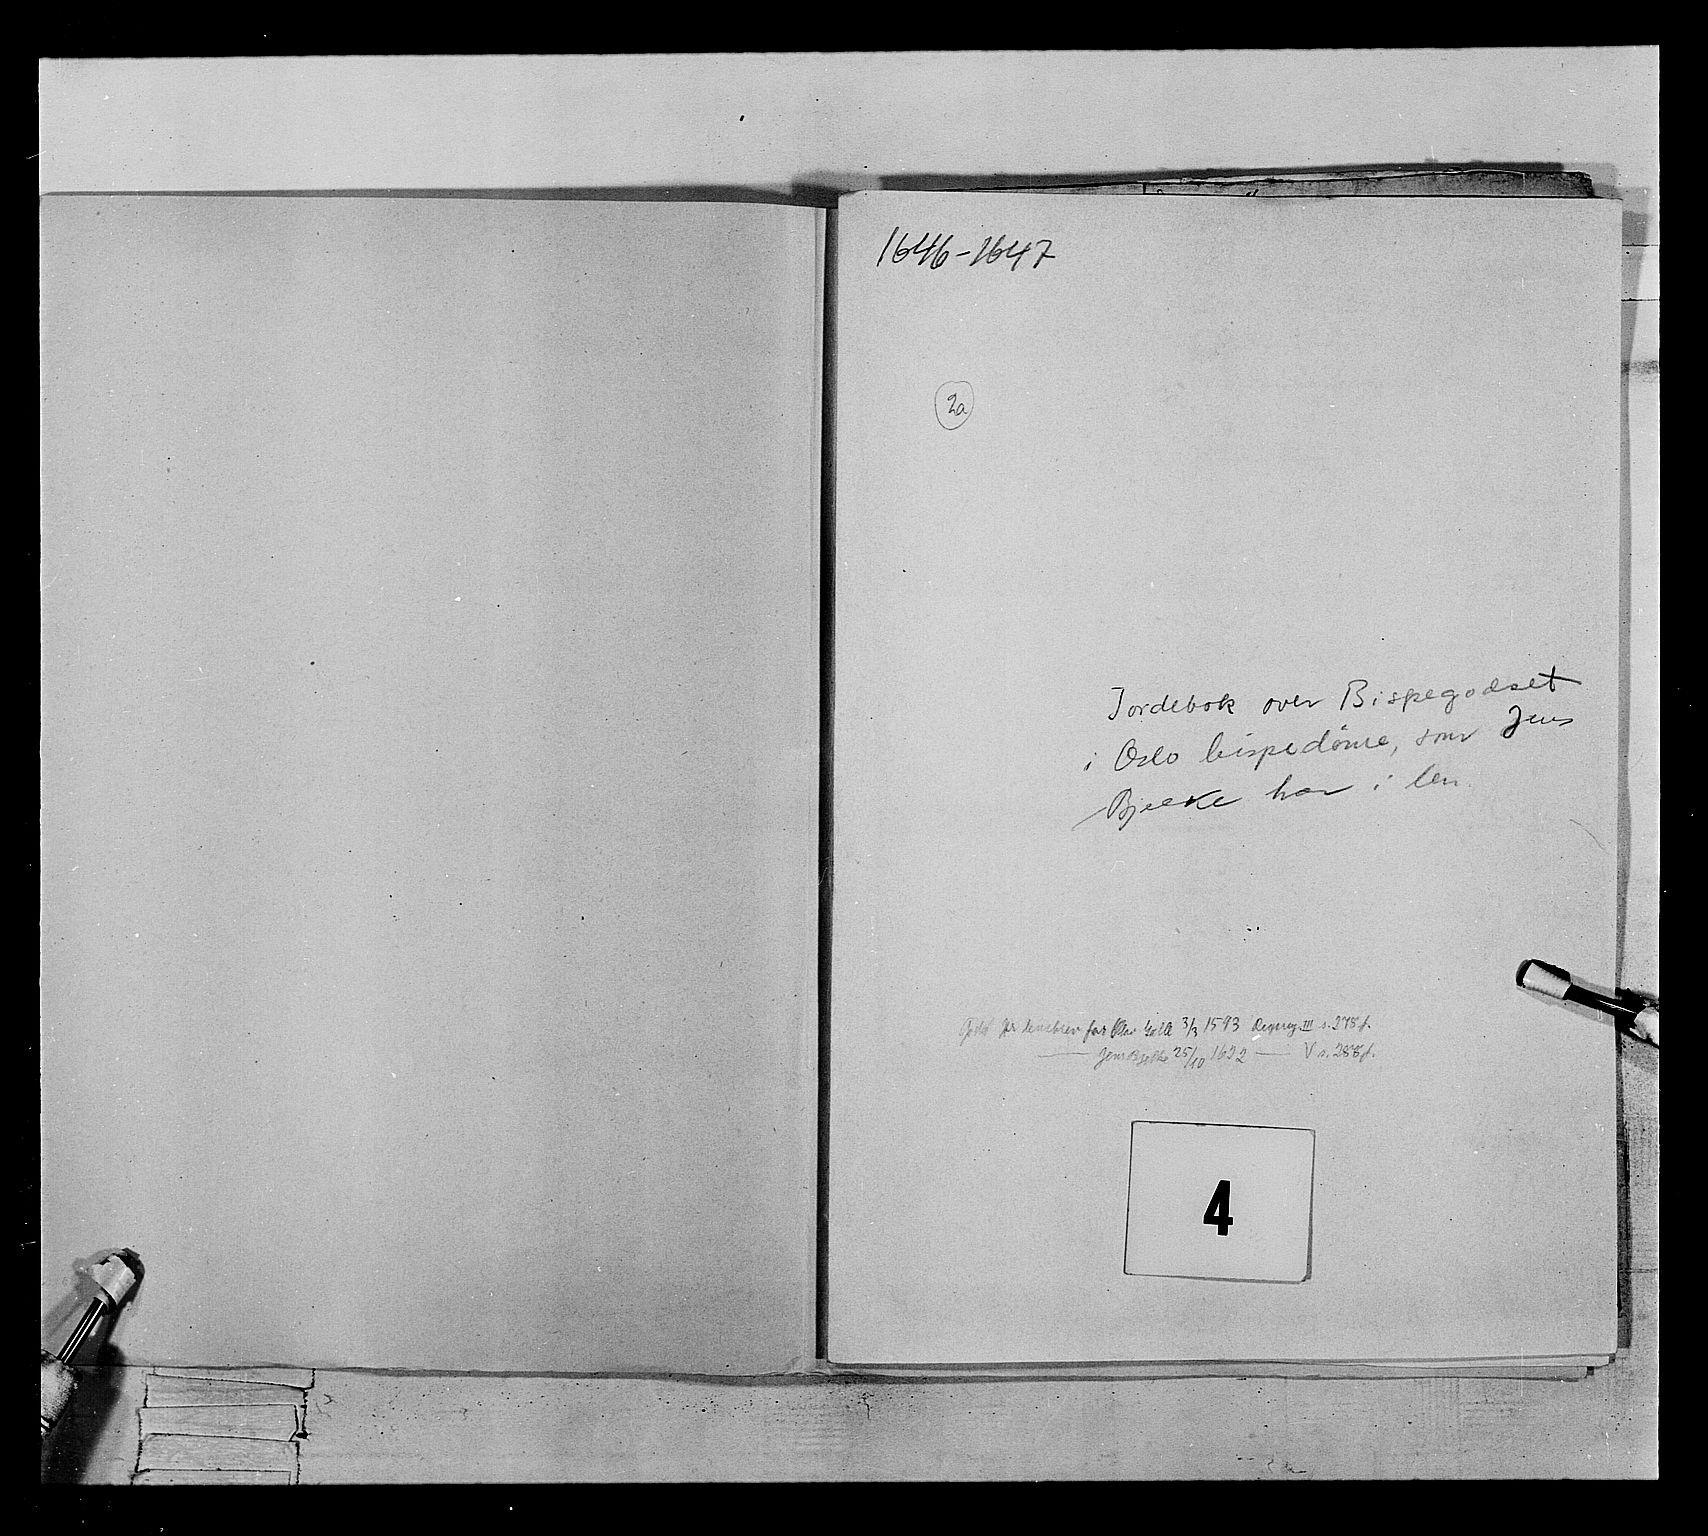 1646-1647
2a
Jordebok over Bispegodset
i Oslo bispedöme, som Jens
Bjelke har i len.
lensbrev for 3/3 1593 III s.
Jens Bjelke 25/10 1632 — V s. 288f.
4